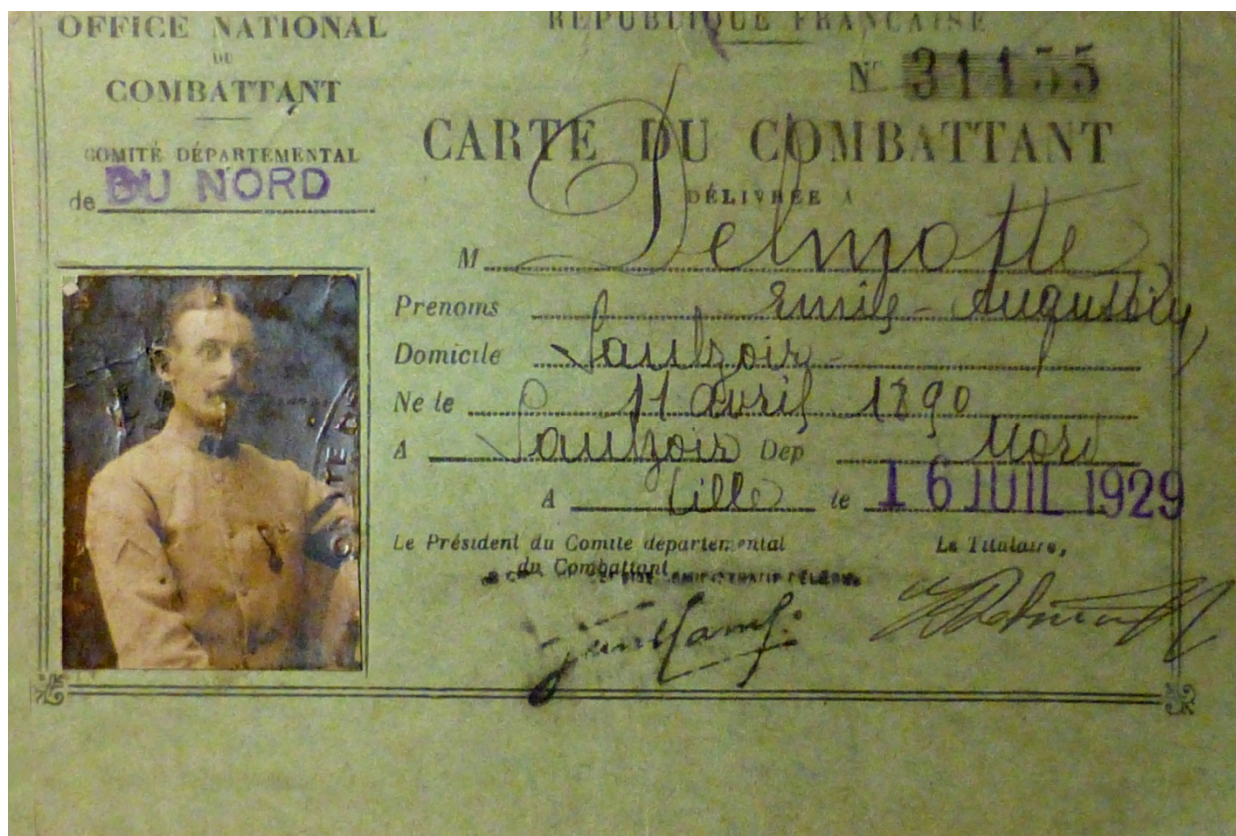 OFFICE NATIONAL
DU
COMBATTANT
COMITÉ DÉPARTEMENTAL
de DU NORD
RÉPUBLIQUE FRANÇAISE
No 31155
CARTE DU COMBATTANT
DÉLIVRÉE A
M Delmotte
Prenoms Emile-Augustin
Domicile Saulzoir
Ne le 11 avril 1890
A Saulzoir Dep Nord
A Lille le 16 JUIL 1929
Le Président du Comite departemental
du Combattant
Le Titulaire,